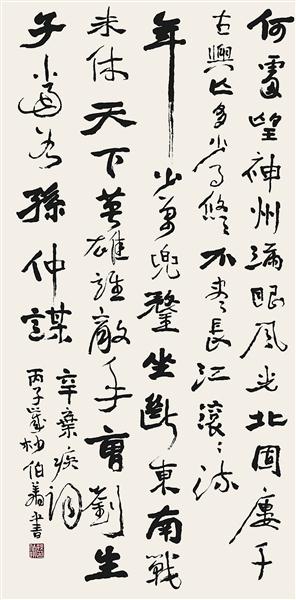 何處望神州滿眼風光北固廔千
古興亡多少事悠々不盡長江滾々流
年少萬兜鍪坐斷東南戰
未休天下英雄誰敵手曹劉生
子當若孫仲謀
辛棄疾詞
丙子歲杪伯書